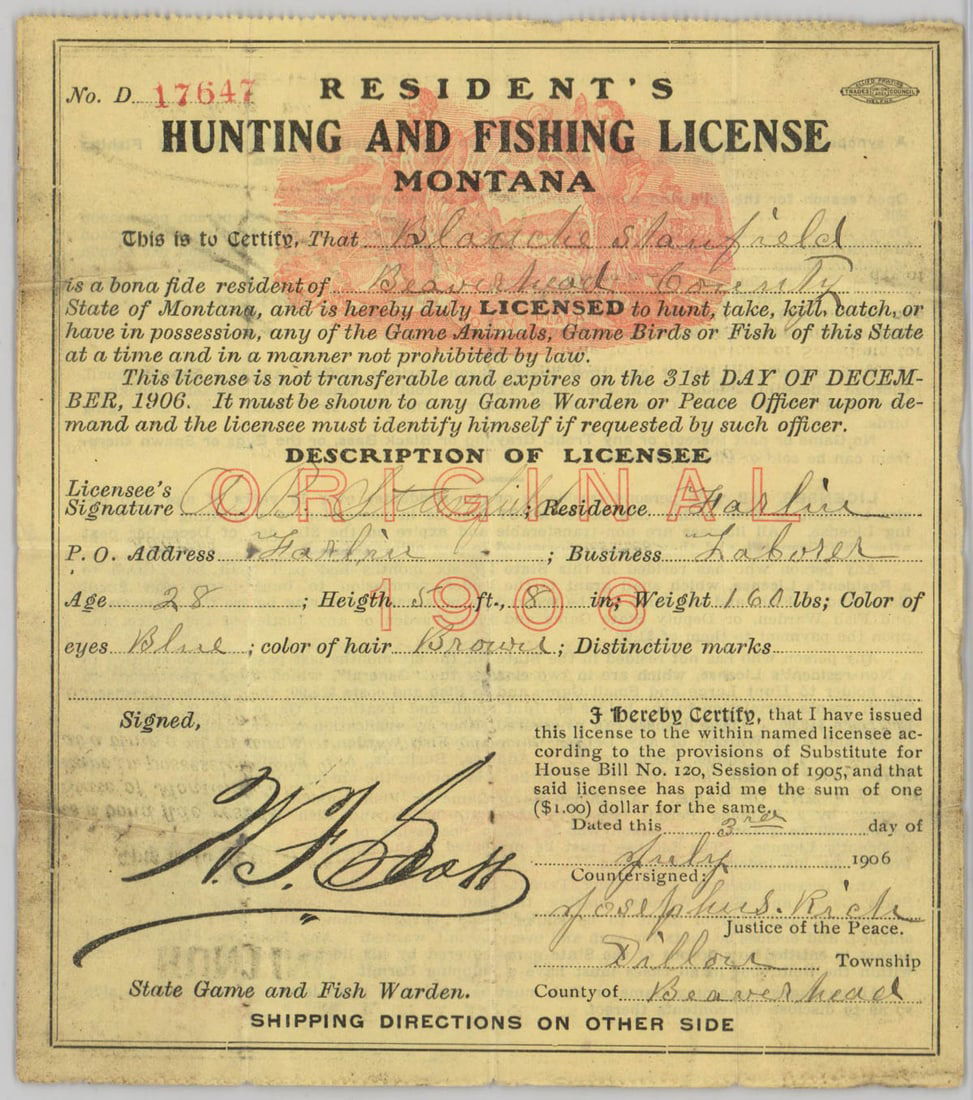 No. D. 17647
RESIDENT'S
ALLIED PRINTING
TRADES COUNCIL
HELENA
HUNTING AND FISHING LICENSE
MONTANA
This is to Certify, That Blanche Stanfield
is a bona fide resident of Beaverhead County
State of Montana, and is hereby duly LICENSED to hunt, take, kill, catch, or
have in possession, any of the Game Animals, Game Birds or Fish of this State
at a time and in a manner not prohibited by law.
This license is not transferable and expires on the 31st DAY OF DECEM-
BER, 1906. It must be shown to any Game Warden or Peace Officer upon de-
mand and the licensee must identify himself if requested by such officer.
DESCRIPTION OF LICENSEE
ORIGINAL
Licensee's
Signature B. Stanfield; Residence Farlin
P. O. Address Farlin; Business Laborer
1906
Age 28; Heigth 5 ft., 8 in; Weight 160 lbs; Color of
eyes Blue; color of hair Brown; Distinctive marks
Signed,
W. F. Scott
State Game and Fish Warden.
I Hereby Certify, that I have issued
this license to the within named licensee ac-
cording to the provisions of Substitute for
House Bill No. 120, Session of 1905, and that
said licensee has paid me the sum of one
($1.00) dollar for the same.
Dated this 3rd day of
July 1906
Countersigned:
Josephus Rich
Justice of the Peace.
Dillon Township
County of Beaverhead
SHIPPING DIRECTIONS ON OTHER SIDE